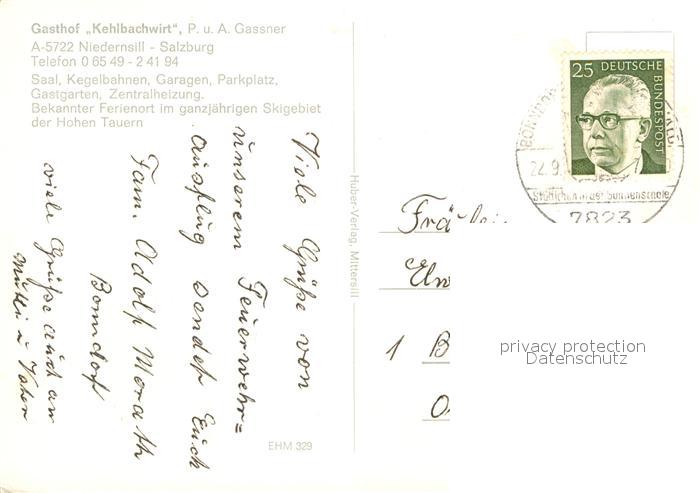 Gasthof „Kehlbachwirt“, P. u. A. Gassner
A-5722 Niedernsill - Salzburg
Telefon 0 65 49 - 2 41 94
Saal, Kegelbahnen, Garagen, Parkplatz,
Gastgarten, Zentralheizung.
Bekannter Ferienort im ganzjährigen Skigebiet
der Hohen Tauern
Viele Grüße von
unserem Feuerwehr=
ausflug sendet Euch
Fam. Adolf Morath
Bonndorf
viele Grüße auch an
Mutti u Vater
Huber-Verlag, Mittersill
EHM 329
25 DEUTSCHE
BUNDESPOST
22.9.
7823
Fräulein
1 B
privacy protection
Datenschutz